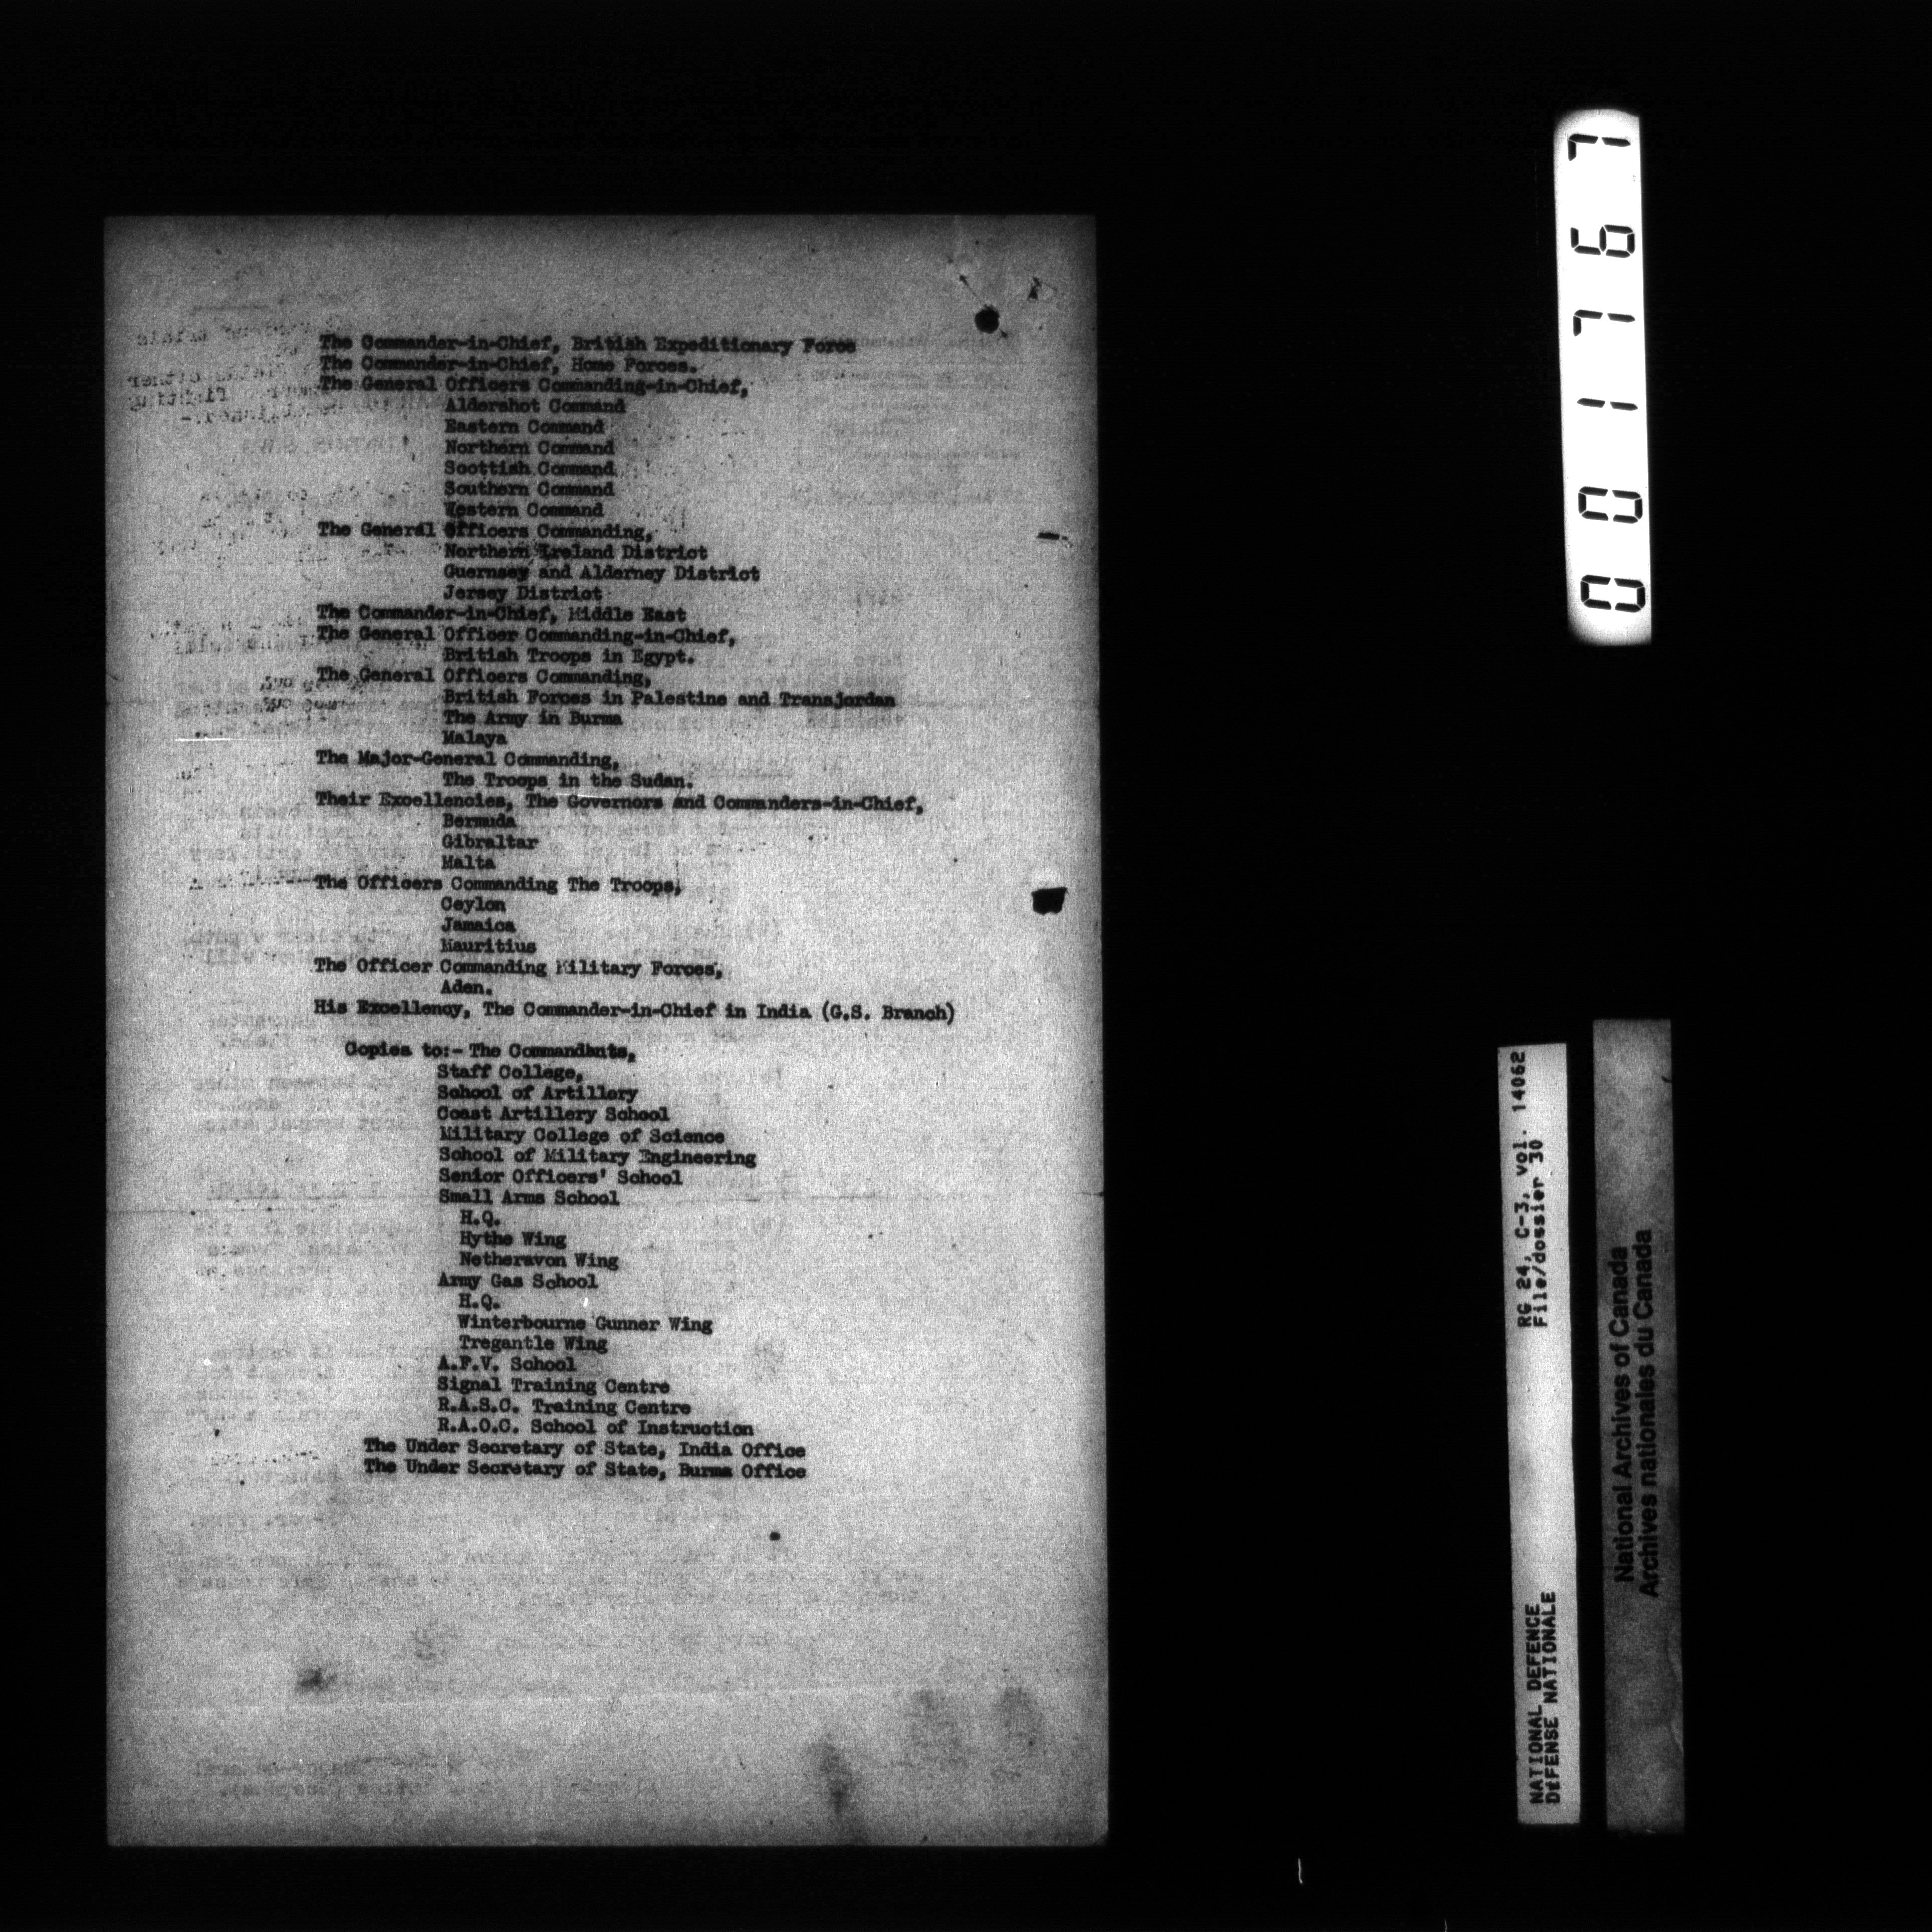 The Commander-in-Chief, British Expeditionary Force
The Commander-in-Chief, Home Forces.
The General Officers Commanding-in-Chief,
Aldershot Command
Eastern Command
Northern Command
Scottish Command
Southern Command
Western Command
The General Officers Commanding,
Northern Ireland District
Guernsey and Alderney District
Jersey District
The Commander-in-Chief, Middle East
The General Officer Commanding-in-Chief,
British Troops in Egypt.
The General Officers Commanding,
British Forces in Palestine and Transjordan
The Army in Burma
Malaya
The Major-General Commanding,
The Troops in the Sudan.
Their Excellencies, The Governors and Commanders-in-Chief,
Bermuda
Gibraltar
Malta
The Officers Commanding The Troops,
Ceylon
Jamaica
Mauritius
The Officer Commanding Military Forces,
Aden.
His Excellency, The Commander-in-Chief in India (G.S. Branch)
Copies to:- The Commandants,
Staff College,
School of Artillery
Coast Artillery School
Military College of Science
School of Military Engineering
Senior Officers' School
Small Arms School
H.Q.
Hythe Wing
Netheravon Wing
Army Gas School
H.Q.
Winterbourne Gunner Wing
Tregantle Wing
A.F.V. School
Signal Training Centre
R.A.S.C. Training Centre
R.A.O.C. School of Instruction
The Under Secretary of State, India Office
The Under Secretary of State, Burma Office
001767
NATIONAL DEFENCE RG 24, C-3, vol. 14062
DÉFENSE NATIONALE File/dossier 30
National Archives of Canada
Archives nationales du Canada